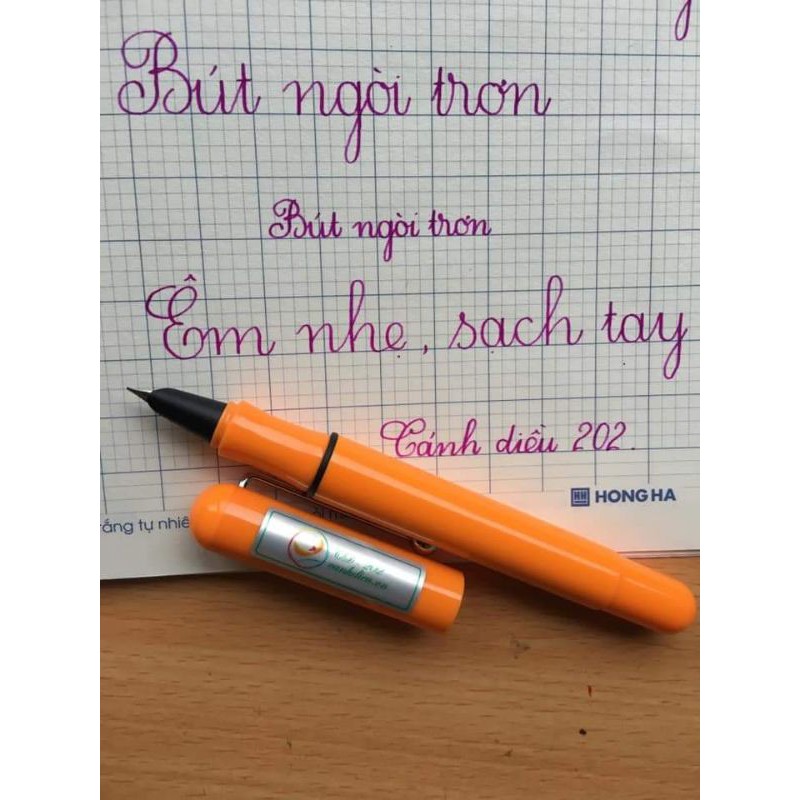 Bút ngòi trơn
Bút ngòi trơn
Êm nhẹ, sạch tay
Cánh diều 202.
HH HONG HA
ắng tự nhiê